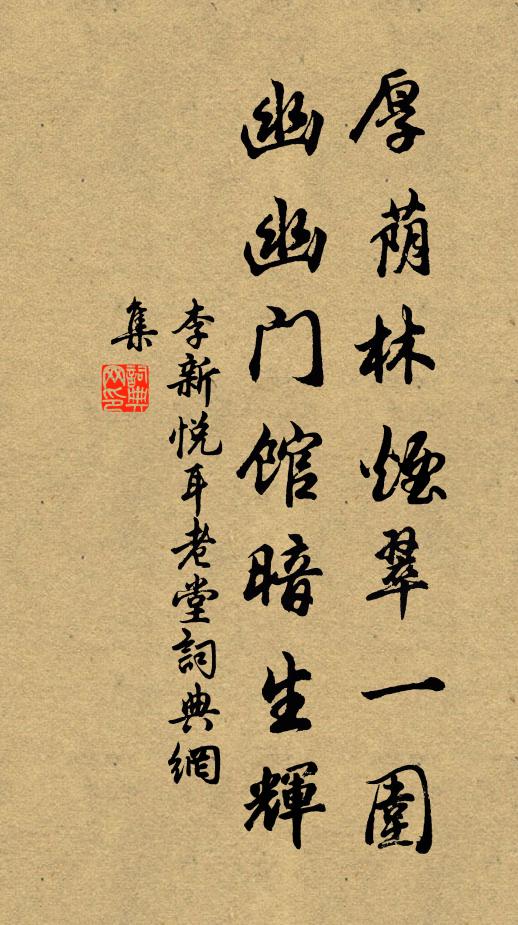 厚荫林煙翠一圍
幽幽门馆暗生輝
李新悦耳老堂詞典網
集
詞典
网印